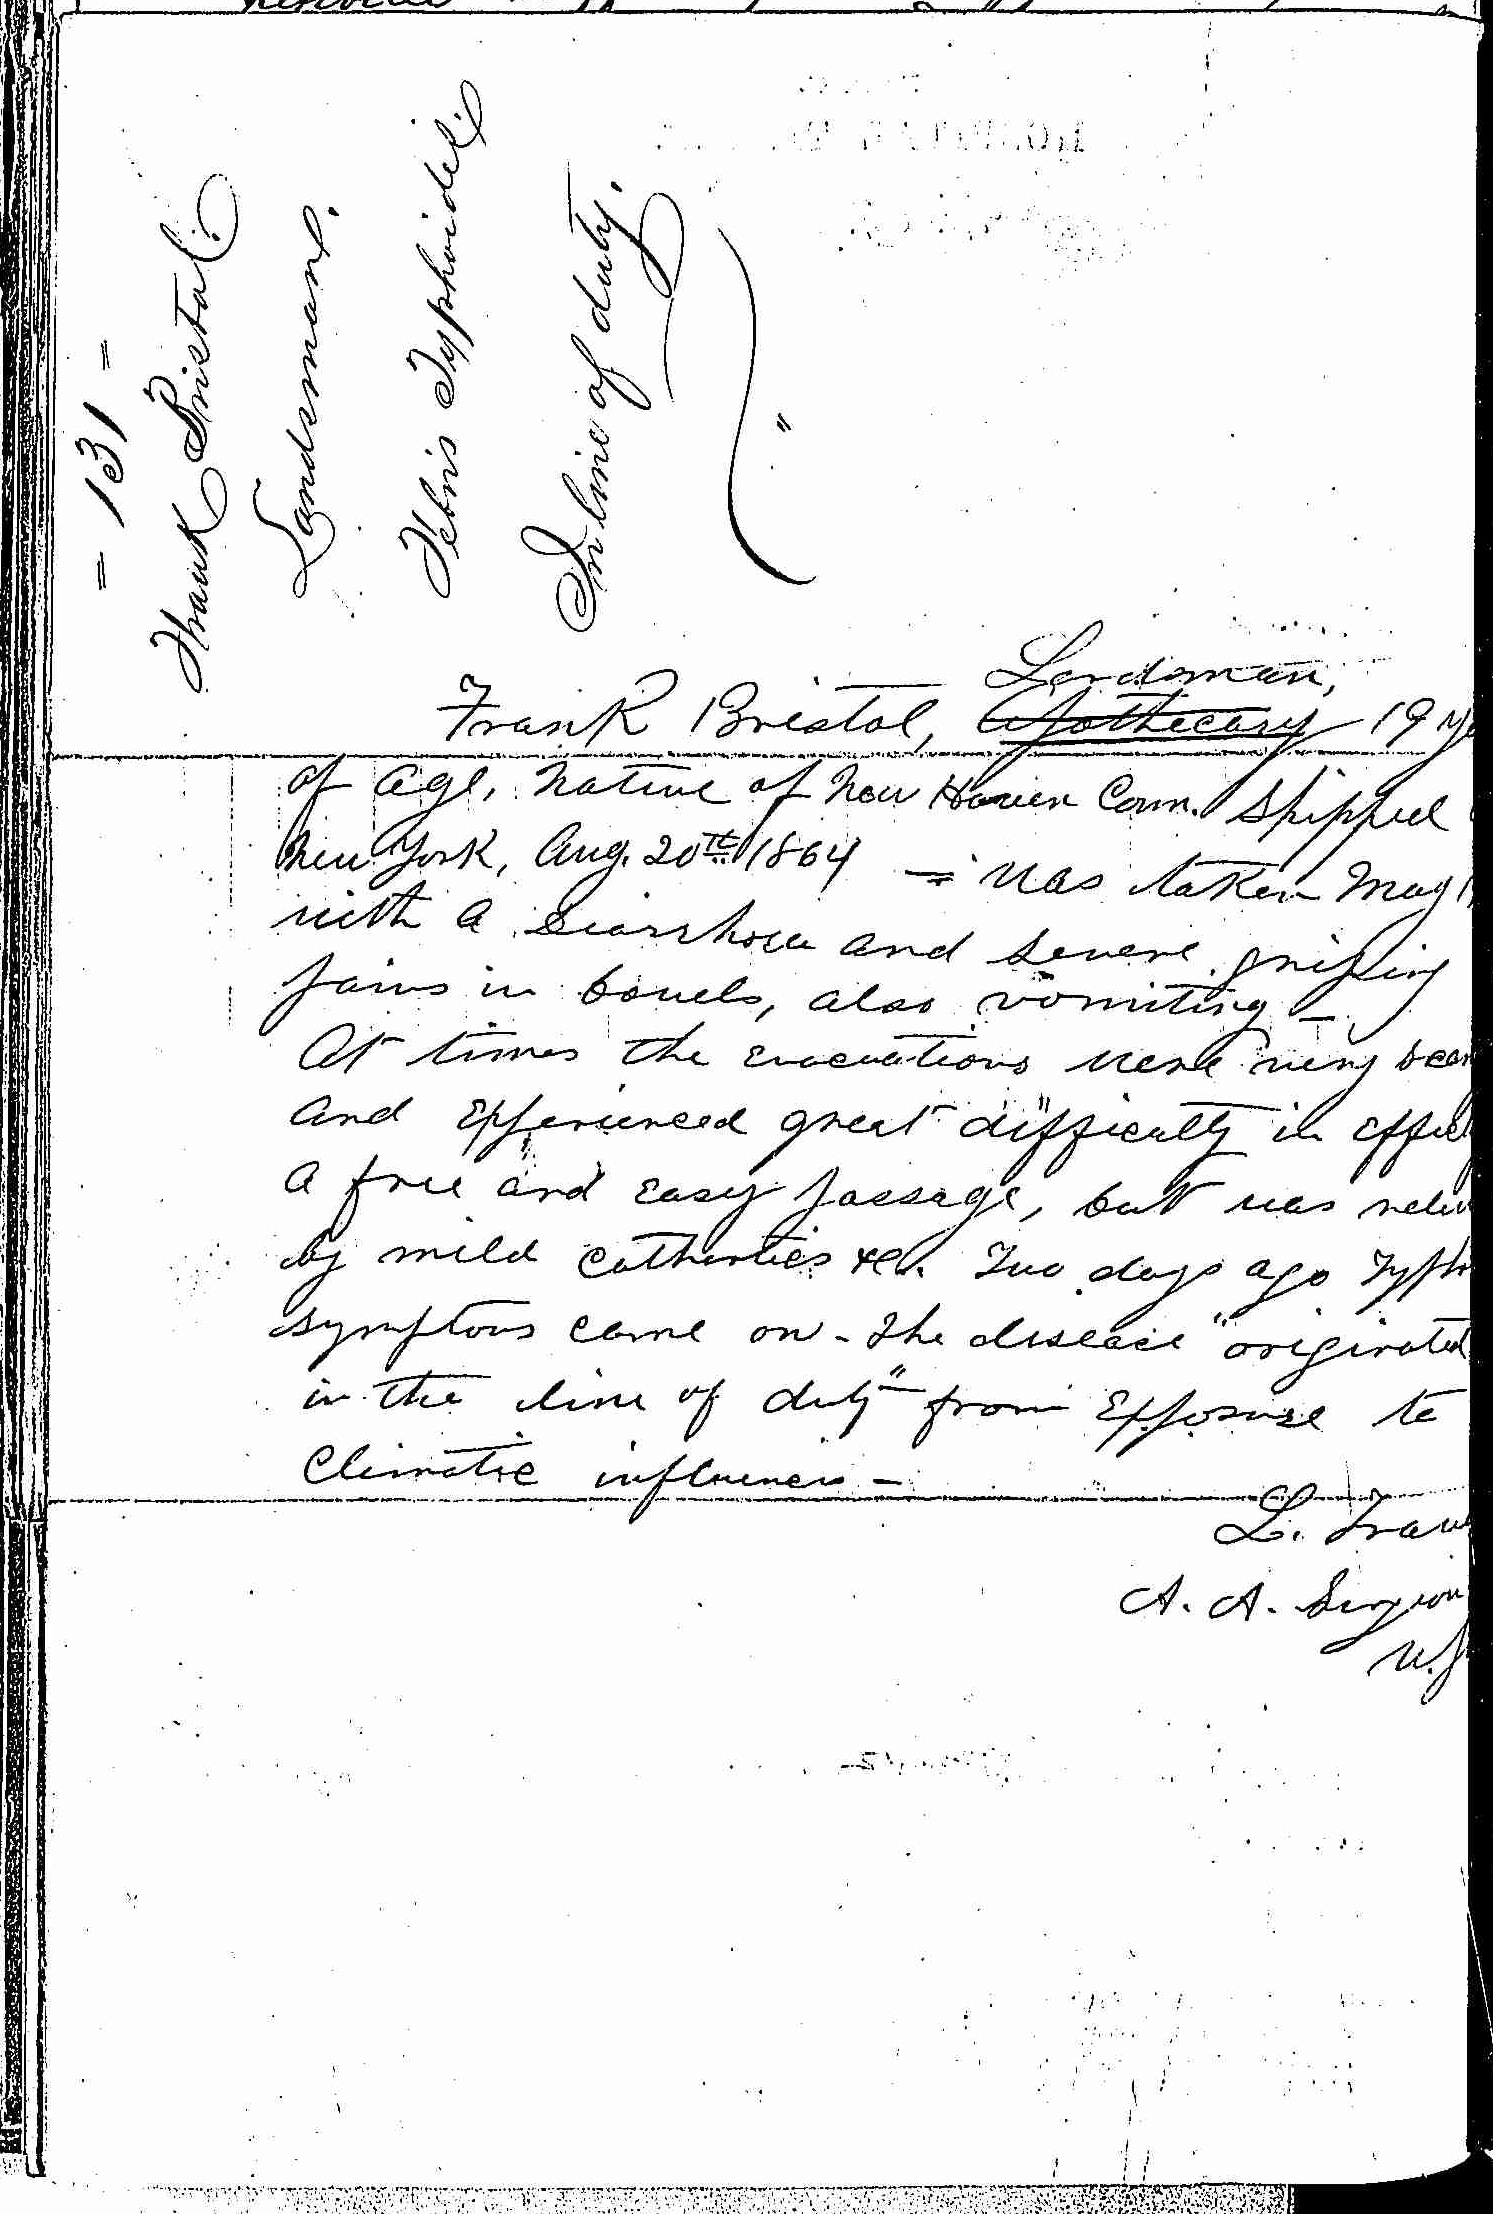 = 131 =
Frank Bristol.
Landsman.
Febris Typhoides.
In line of duty.
Landsman,
Frank Bristol, Apothecary 19 ye
of age, native of New Haven Conn. Shipped
New York, Aug. 20th 1864 = was taken May
with a Diarrhoea and severe griping
pains in bowels, also vomiting –
At times the evacuations were very scan
and experienced great difficulty in effect
a free and easy passage, but was reliev
by mild cathartics &c. Two days ago Typho
symptoms came on – The disease "originated
in the line of duty" from exposure to
Climatic influences –
L. Frau
A. A. Surgeon
U.S